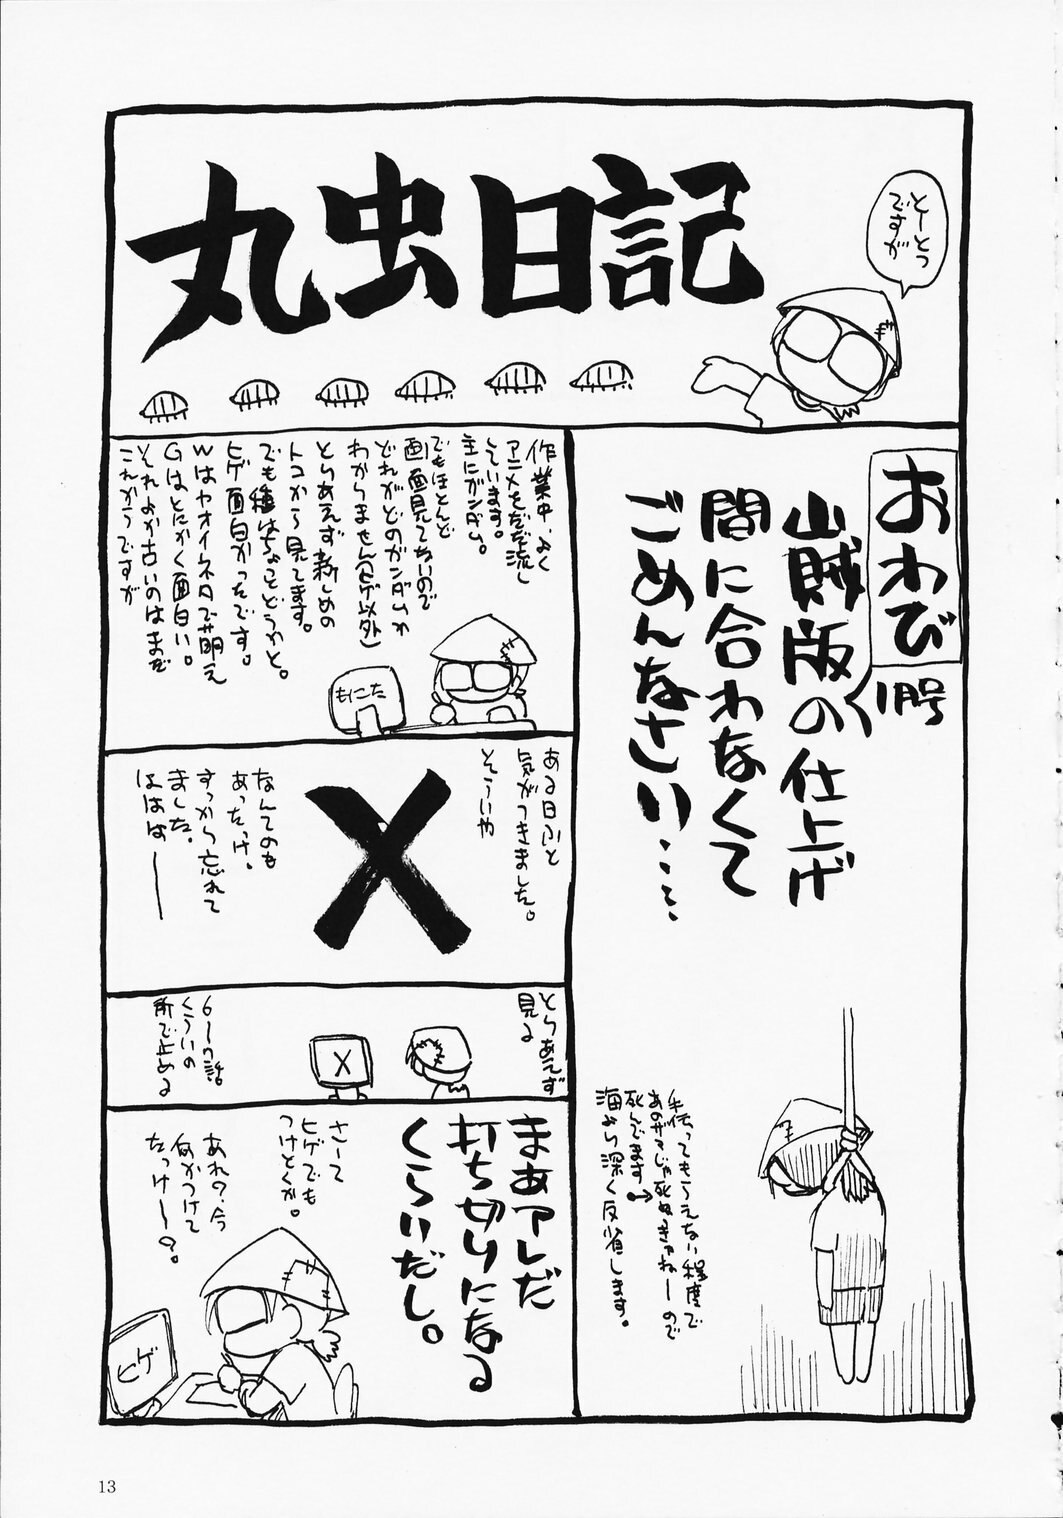 丸虫日記
とーとつ
ですが
おわび
1号
山賊版の仕上げ
間に合わなくて
ごめんなさい……
手伝ってもらえない程度で
死んでます
海より深く反省します。
作業中、よく
アニメをだだ流し
しています。
主にガンダム。
でもほとんど
画面見てないので
どれがどのガンダムか
わかりません(ヒゲ以外)
とりあえず新しめの
トコから見てます。
でも種はちょっとどうかと。
ヒゲ面白かったです。
Wはヤオイネタで萌え
Gはとにかく面白い。
それよか古いのはまだ
これからですが
もにた
ある日ふと
気がつきました。
そういや
X
なんてのも
あったっけ。
すっから忘れて
ました。
ははは――
とりあえず
見る
X
6〜7話
くらいの
所で止める
まぁアレだ
打ち切りになる
くらいだし。
さーて
ヒゲでも
つけとくか。
あれ?今
何かつけて
たっけー?。
ヒゲ
13